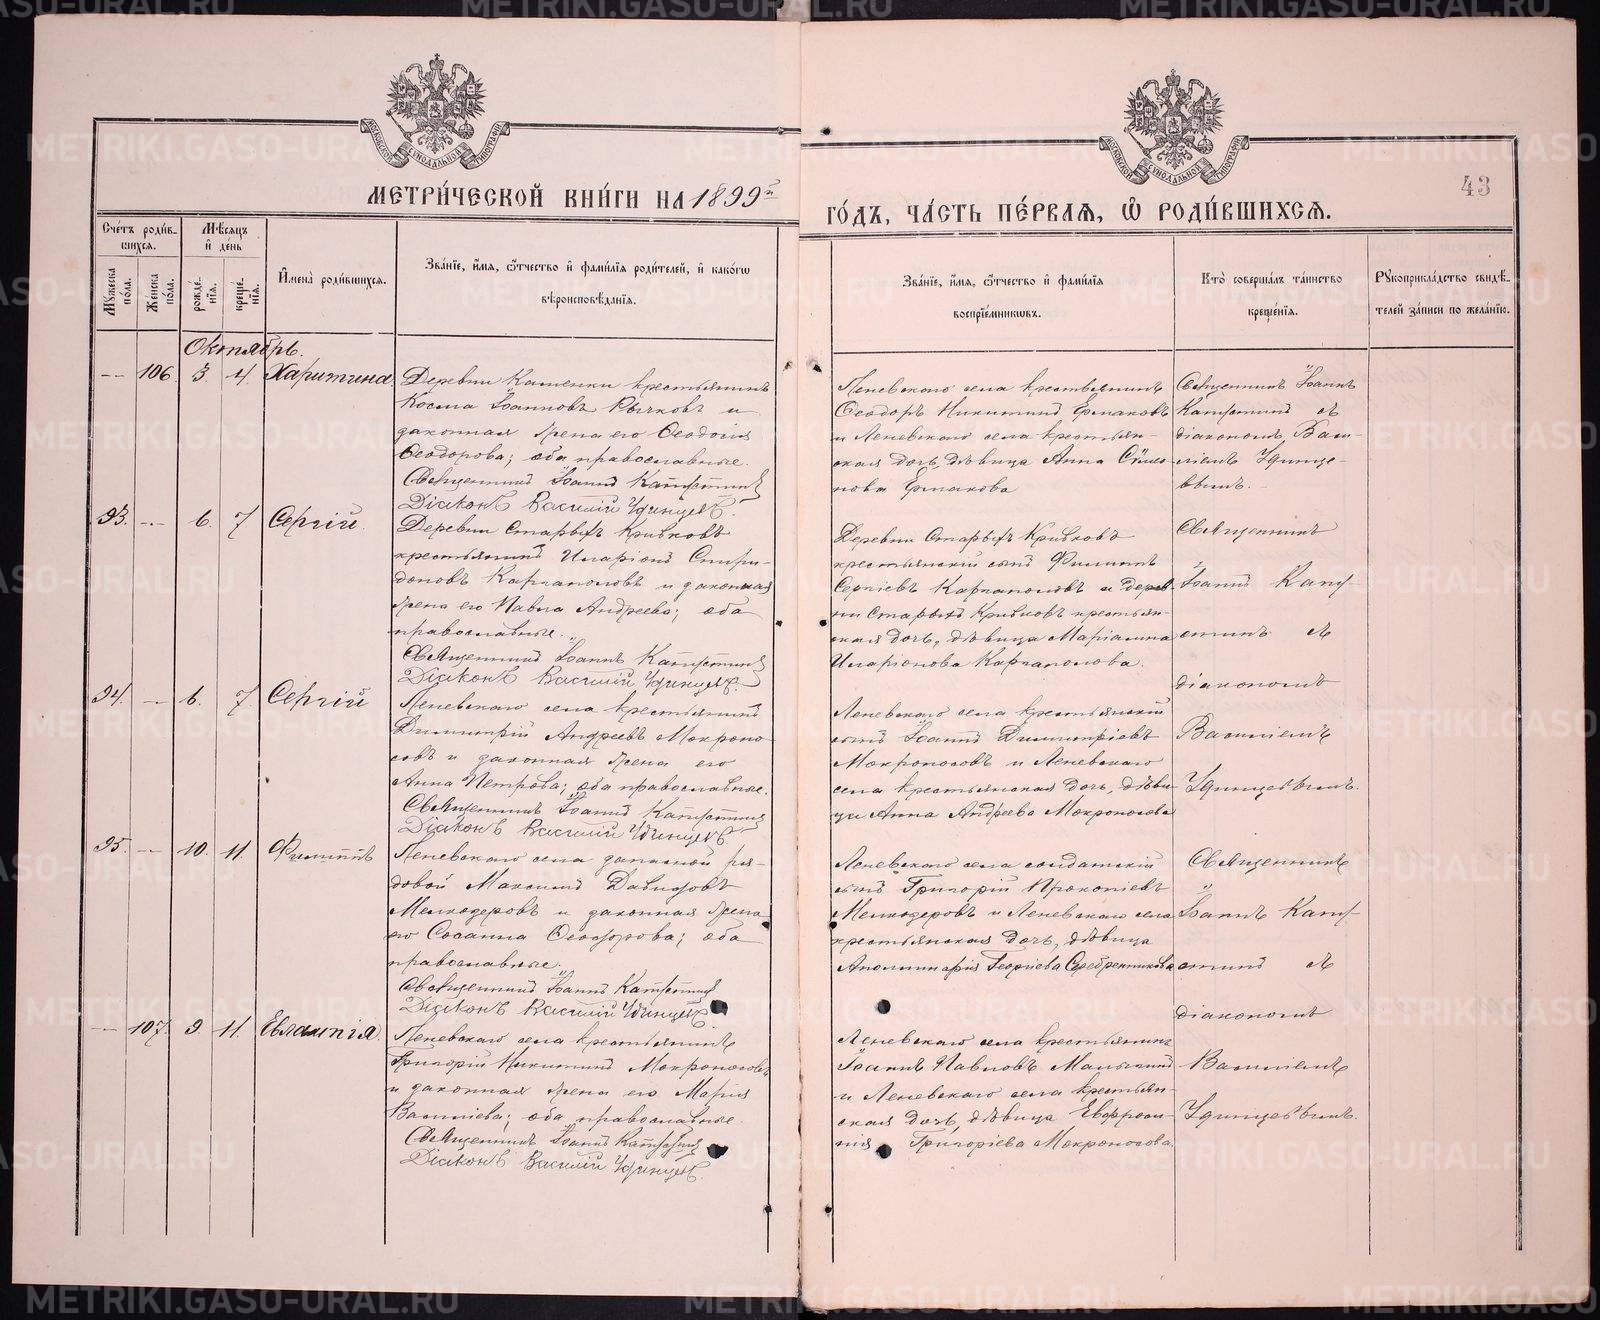 МЕТРИ́ЧЕСКОЙ КНИ́ГИ НА 1899й
ГО́ДЪ, ЧА́СТЬ ПЕ́РВАѦ, Ѡ РОДИ́ВШИХСѦ.
43
МОСКОВСКОЙ СѴНОДАЛЬНОЙ ТИПОГРАФІИ
МОСКОВСКОЙ СѴНОДАЛЬНОЙ ТИПОГРАФІИ
Сче́тъ роди́вшихсѧ.
Мꙋжеска по́ла.
Же́нска по́ла.
Мѣ́сѧцъ и҆ де́нь
рожде́нїѧ.
креще́нїѧ.
И҆мена̀ роди́вшихсѧ.
Зва́нїе, и҆́мѧ, ѻ҆́тчество и҆ фами́лїѧ роди́телей, и҆ како́гѡ
вѣроисповѣ́данїѧ.
Зва́нїе, и҆́мѧ, ѻ҆́тчество и҆ фами́лїѧ
воспрїе́мникѡвъ.
Кто̀ соверша́лъ та́инство
креще́нїѧ.
Рꙋкоприкла́дство свидѣ́телей за́писи по жела́нїю.
Октябрь.
— 106 3. 4. Харитина
Деревни Каменки крестьянинъ
Косма Іоанновъ Рычковъ и
законная жена его Ѳеодосія
Ѳеодорова; оба православные.
Священникъ Іоаннъ Капустинъ
Діаконъ Василій Удинцевъ.
Леневскаго села крестьянинъ
Ѳеодоръ Никитинъ Ермаковъ
и Леневскаго села крестьян-
ская дочь, дѣвица Анна Симео-
нова Ермакова
Священникъ Іоаннъ
Капустинъ съ
діакономъ Васи-
ліемъ Удинце-
вымъ.
93. — 6. 7 Сергій
Деревни Старыхъ Кривковъ
крестьянинъ Иларіонъ Спири-
доновъ Каргаполовъ и законная
жена его Павла Андреева; оба
православные.
Священникъ Іоаннъ Капустинъ
Діаконъ Василій Удинцевъ.
Деревни Старыхъ Кривковъ
крестьянскій сынъ Филиппъ
Сергіевъ Каргаполовъ и дерев-
ни Старыхъ Кривковъ крестьян-
ская дочь, дѣвица Маріамна
Иларіонова Каргаполова.
Священникъ
Іоаннъ Капу-
стинъ съ
діакономъ
Василіемъ
Удинцевымъ.
94. — 6. 7 Сергій
Леневскаго села крестьянинъ
Димитрій Андреевъ Мокроно-
совъ и законная жена его
Анна Петрова; оба православные.
Священникъ Іоаннъ Капустинъ
Діаконъ Василій Удинцевъ
Леневскаго села крестьянскій
сынъ Іоаннъ Димитріевъ
Мокроносовъ и Леневскаго
села крестьянская дочь, дѣви-
ца Анна Андреева Мокроносова
95. — 10. 11. Филиппъ
Леневскаго села запасной ря-
довой Максимъ Давидовъ
Мелкозеровъ и законная жена
его Сосанна Ѳеодорова; оба
православные.
Священникъ Іоаннъ Капустинъ
Діаконъ Василій Удинцевъ.
Леневскаго села солдатскій
сынъ Григорій Прокопіевъ
Мелкозеровъ и Леневскаго села
крестьянская дочь, дѣвица
Аполлинарія Георгіева Серебренникова
Священникъ
Іоаннъ Капу-
стинъ съ
діакономъ
Василіемъ
Удинцевымъ.
— 107. 9. 11. Евлампія.
Леневскаго села крестьянинъ
Григорій Никитинъ Мокроносовъ
и законная жена его Марія
Василіева; оба православные.
Священникъ Іоаннъ Капустинъ
Діаконъ Василій Удинцевъ.
Леневскаго села крестьянинъ
Іоаннъ Павловъ Малыгинъ
и Леневскаго села крестьян-
ская дочь, дѣвица Евфроси-
нія Григоріева Мокроносова
METRIKI.GASO-URAL.RU